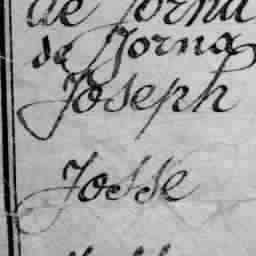 de Jorna
de Jorna
Joseph
Josse